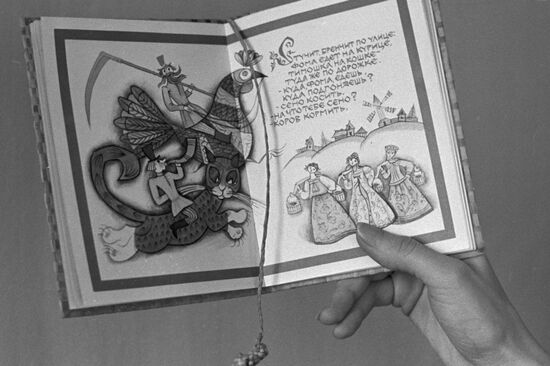 Стучит, бренчит по улице:
Фома едет на курице,
Тимошка на кошке –
Туда же по дорожке.
– Куда Фома едешь,
Куда погоняешь?
– Сено косить.
– На что тебе сено?
– Коров кормить.